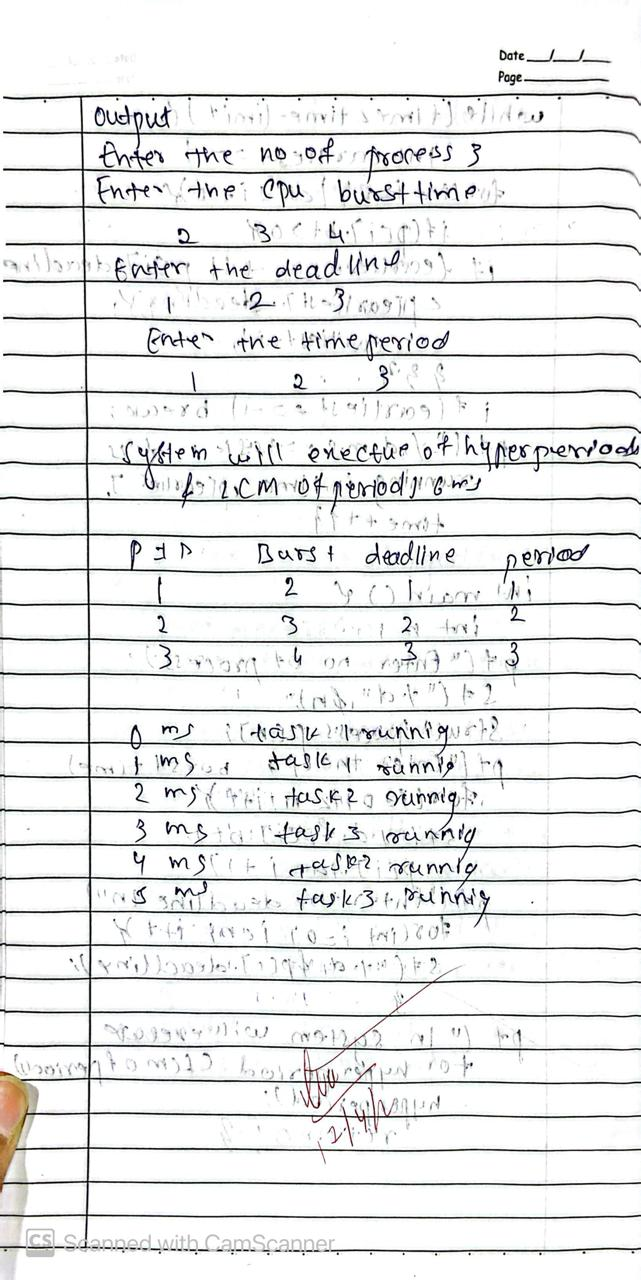 Date
Page
output
Enter the no of process 3
Enter the cpu burst time
2 3 4
Enter the deadline
1 2 3
Enter the time period
1 2 3
System will exectue of hyperperiod
LCM of period) 6 ms
PID Burst deadline period
1 2 1 1
2 3 2 2
3 4 3 3
0 ms task 1 runnig
1 ms task 1 runnig
2 ms task 2 runnig
3 ms task 3 runnig
4 ms task 2 runnig
5 ms task 3 runnig
CS Scanned with CamScanner